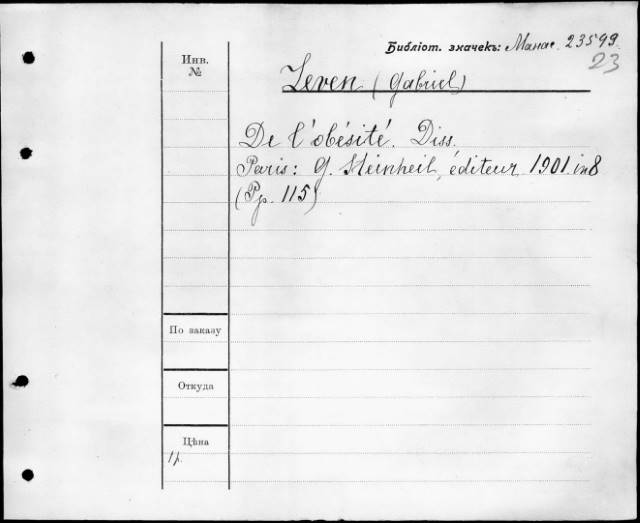 Библіот. значекъ: Манас. 23599.
23
Инв.
№
Leven (Gabriel)
De l'obésité. Diss.
Paris: G. Steinheil, éditeur 1901. in 8
(Pp. 115)
По заказу
Откуда
Цѣна
1 р.